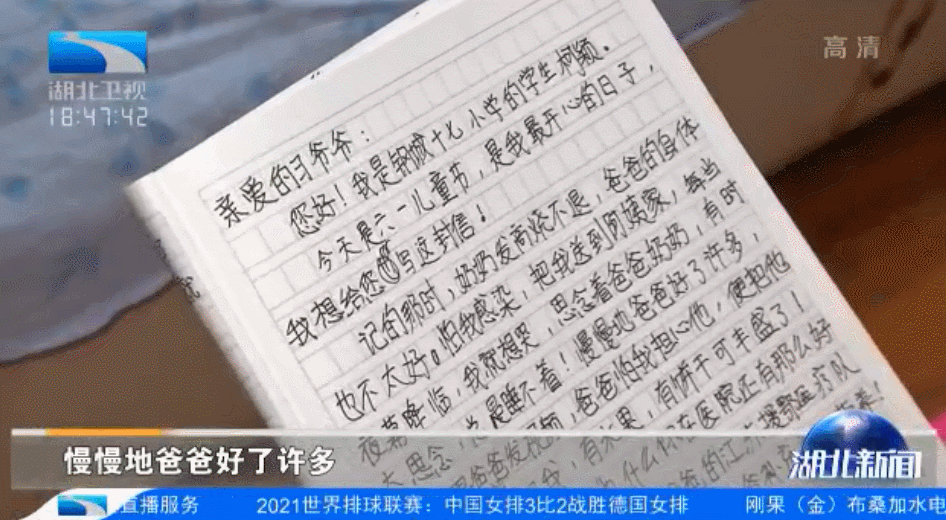 湖北卫视
高清
18:47:42
亲爱的习爷爷：
您好！我是钢城十七小学的学生柯颖。
今天是六一儿童节，是我最开心的日子，
我想给您写这封信！
记的那时，奶奶发高烧不退，爸爸的身体
也不太好。怕我感染，把我送到阿姨家，每当
夜幕降临，我就想哭，思念着爸爸奶奶，有时
总是睡不着！慢慢地爸爸好了许多，
太思念 爸爸怕我担心他，便把他
爸爸发视频 有水果，有饼干可丰盛了！
为什么你在医院还有那么好
爸爸的江苏援鄂医疗队
慢慢地爸爸好了许多
湖北新闻
直播服务 2021世界排球联赛：中国女排3比2战胜德国女排 刚果（金）布桑加水电